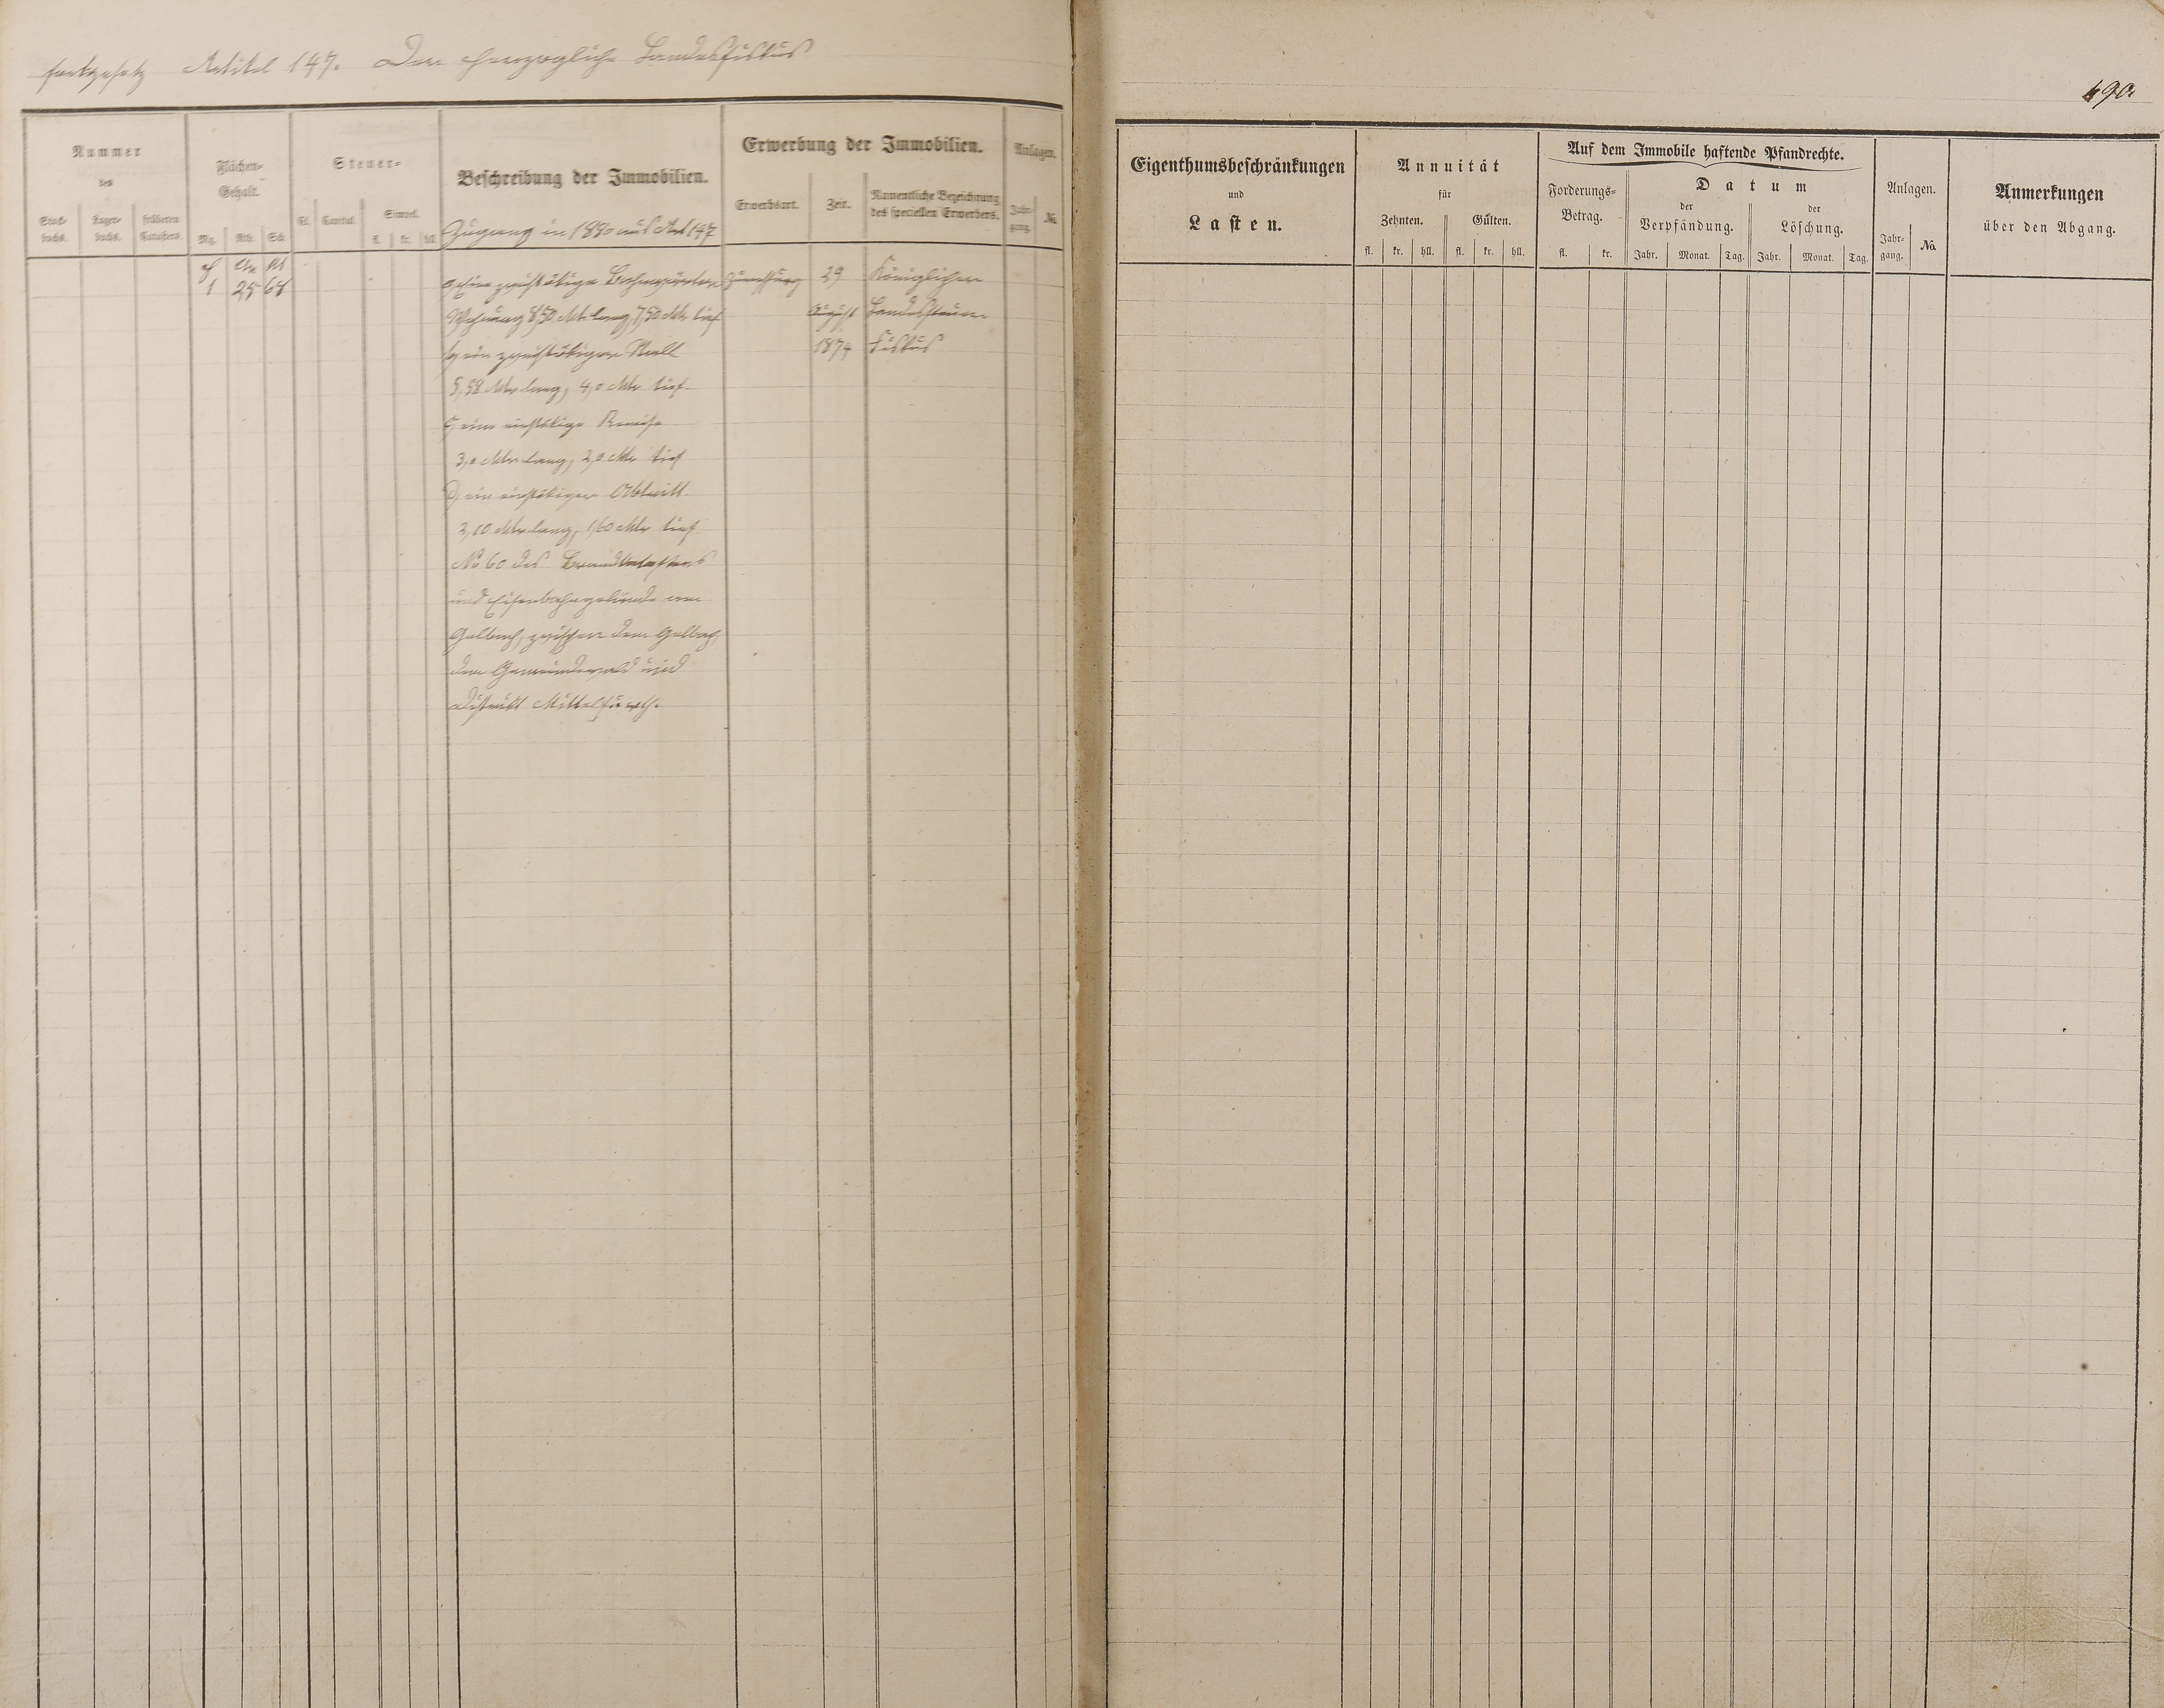 fortgesetz Artikel 147. Der herzogliche Landesfiskus
490.
Nummer
des
Stock-
buchs.
Lager-
buchs.
früheren
Catasters.
Flächen-
Gehalt.
Mg. Rth. Sch.
Steuer-
Cl. Capital. Simpel.
fl. kr. hll.
Beschreibung der Immobilien.
Zugang in 1880 aus Art 147
Erwerbung der Immobilien.
Erwerbsart. Zeit. Namentliche Bezeichnung
des speciellen Erwerbers.
Anlagen.
Jahr-
gang. No.
1 25 68
a, Eine zweistökige Bahnwärter
Wohnung 8,50 Mtr lang 7,50 Mtr tief
b, ein zweistökiger Stall
5,58 Mtr lang, 4,0 Mtr tief
c, eine einstökige Remise
3,0 Mtr lang, 2,0 Mtr tief
d, ein einstökiger Abtritt
2,10 Mtr lang, 1,60 Mtr tief
No 60 des Brandkatasters
und Eisenbahngelände am
Gelbach, zwischen dem Gelbach,
dem Gemeindewald und
Distrikt
29
August
1874
Königlicher
Landessteuer
Fiskus
Eigenthumsbeschränkungen
und
Lasten.
Annuität
für
Zehnten. Gülten.
fl. kr. hll. fl. kr. hll.
Auf dem Immobile haftende Pfandrechte.
Forderungs-
Betrag.
fl. kr.
Datum
der
Verpfändung.
der
Löschung.
Jahr. Monat. Tag. Jahr. Monat. Tag.
Anlagen.
Jahr-
gang. No.
Anmerkungen
über den Abgang.